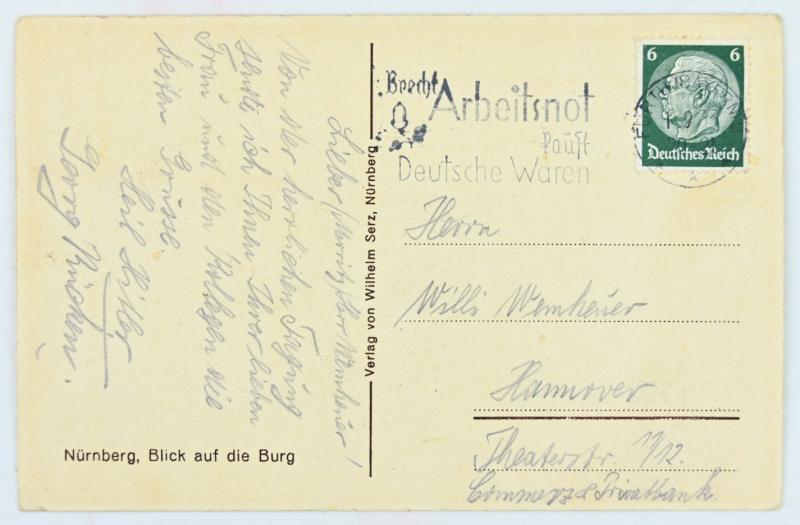 Lieber Herr Wemheuer!
Von der herrlichen Tagung
sende ich Ihnen Ihrer lieben
Frau und den Kollegen die
besten Grüsse
Heil Hitler
Georg
Nürnberg, Blick auf die Burg
Verlag von Wilhelm Serz, Nürnberg
Brecht
Arbeitsnot
kauft
Deutsche Waren
6 6
Deutsches Reich
Herrn
Willi Wemheuer
Hannover
Theaterstr. 11/12.
Commerz & Privatbank.